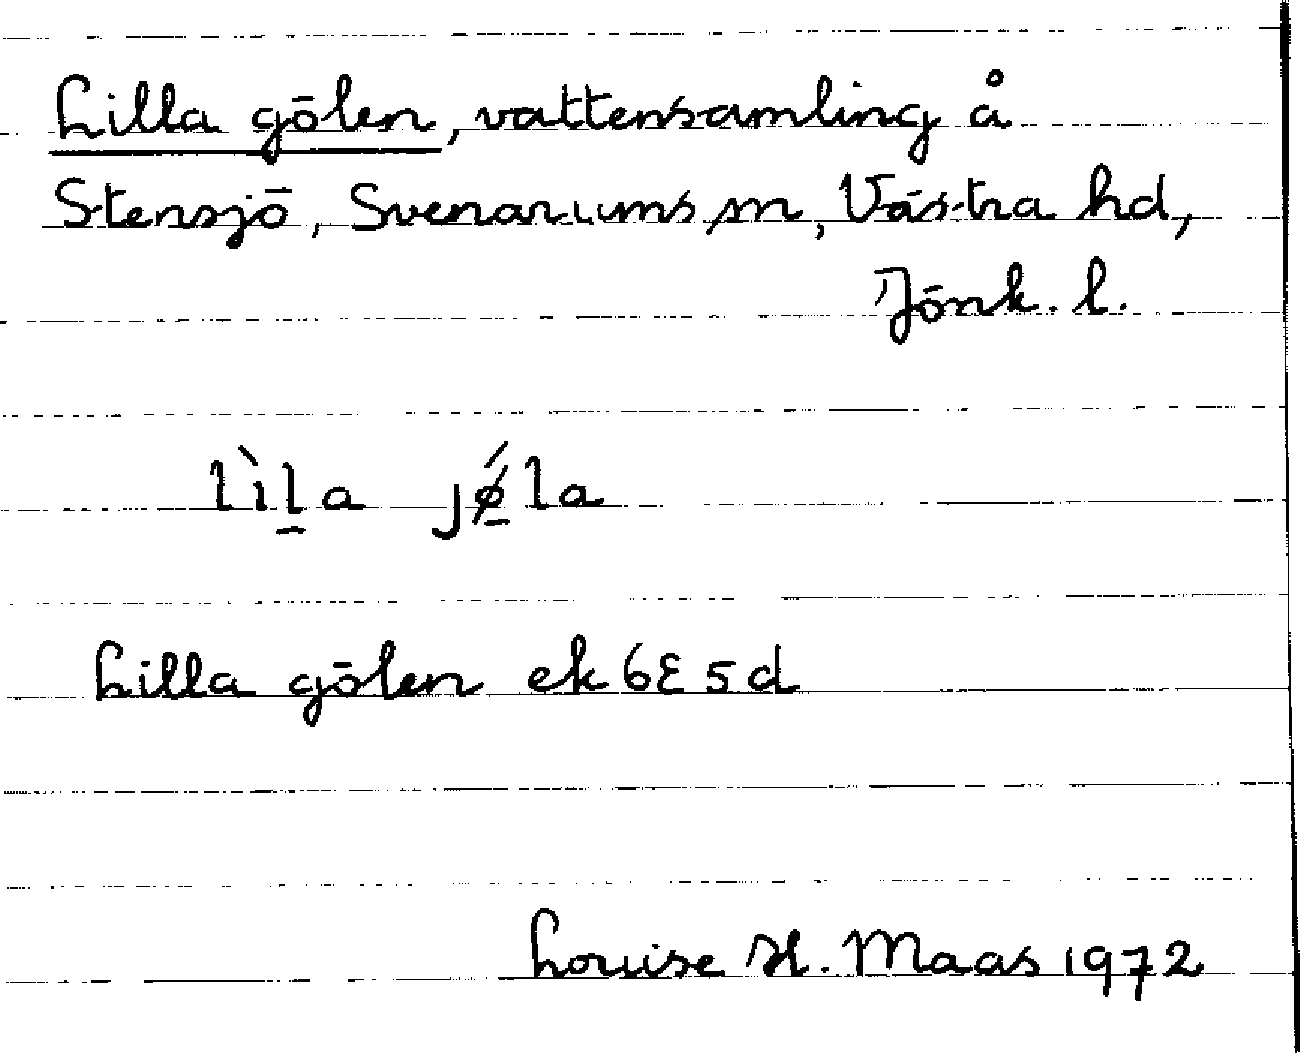 Lilla gölen, vattensamling å
Stensjö, Svenarums sn, Västra hd,
Jönk. l.
lìl̠a jǿ̠la
Lilla gölen ek 6E 5d
Louise H. Maas 1972